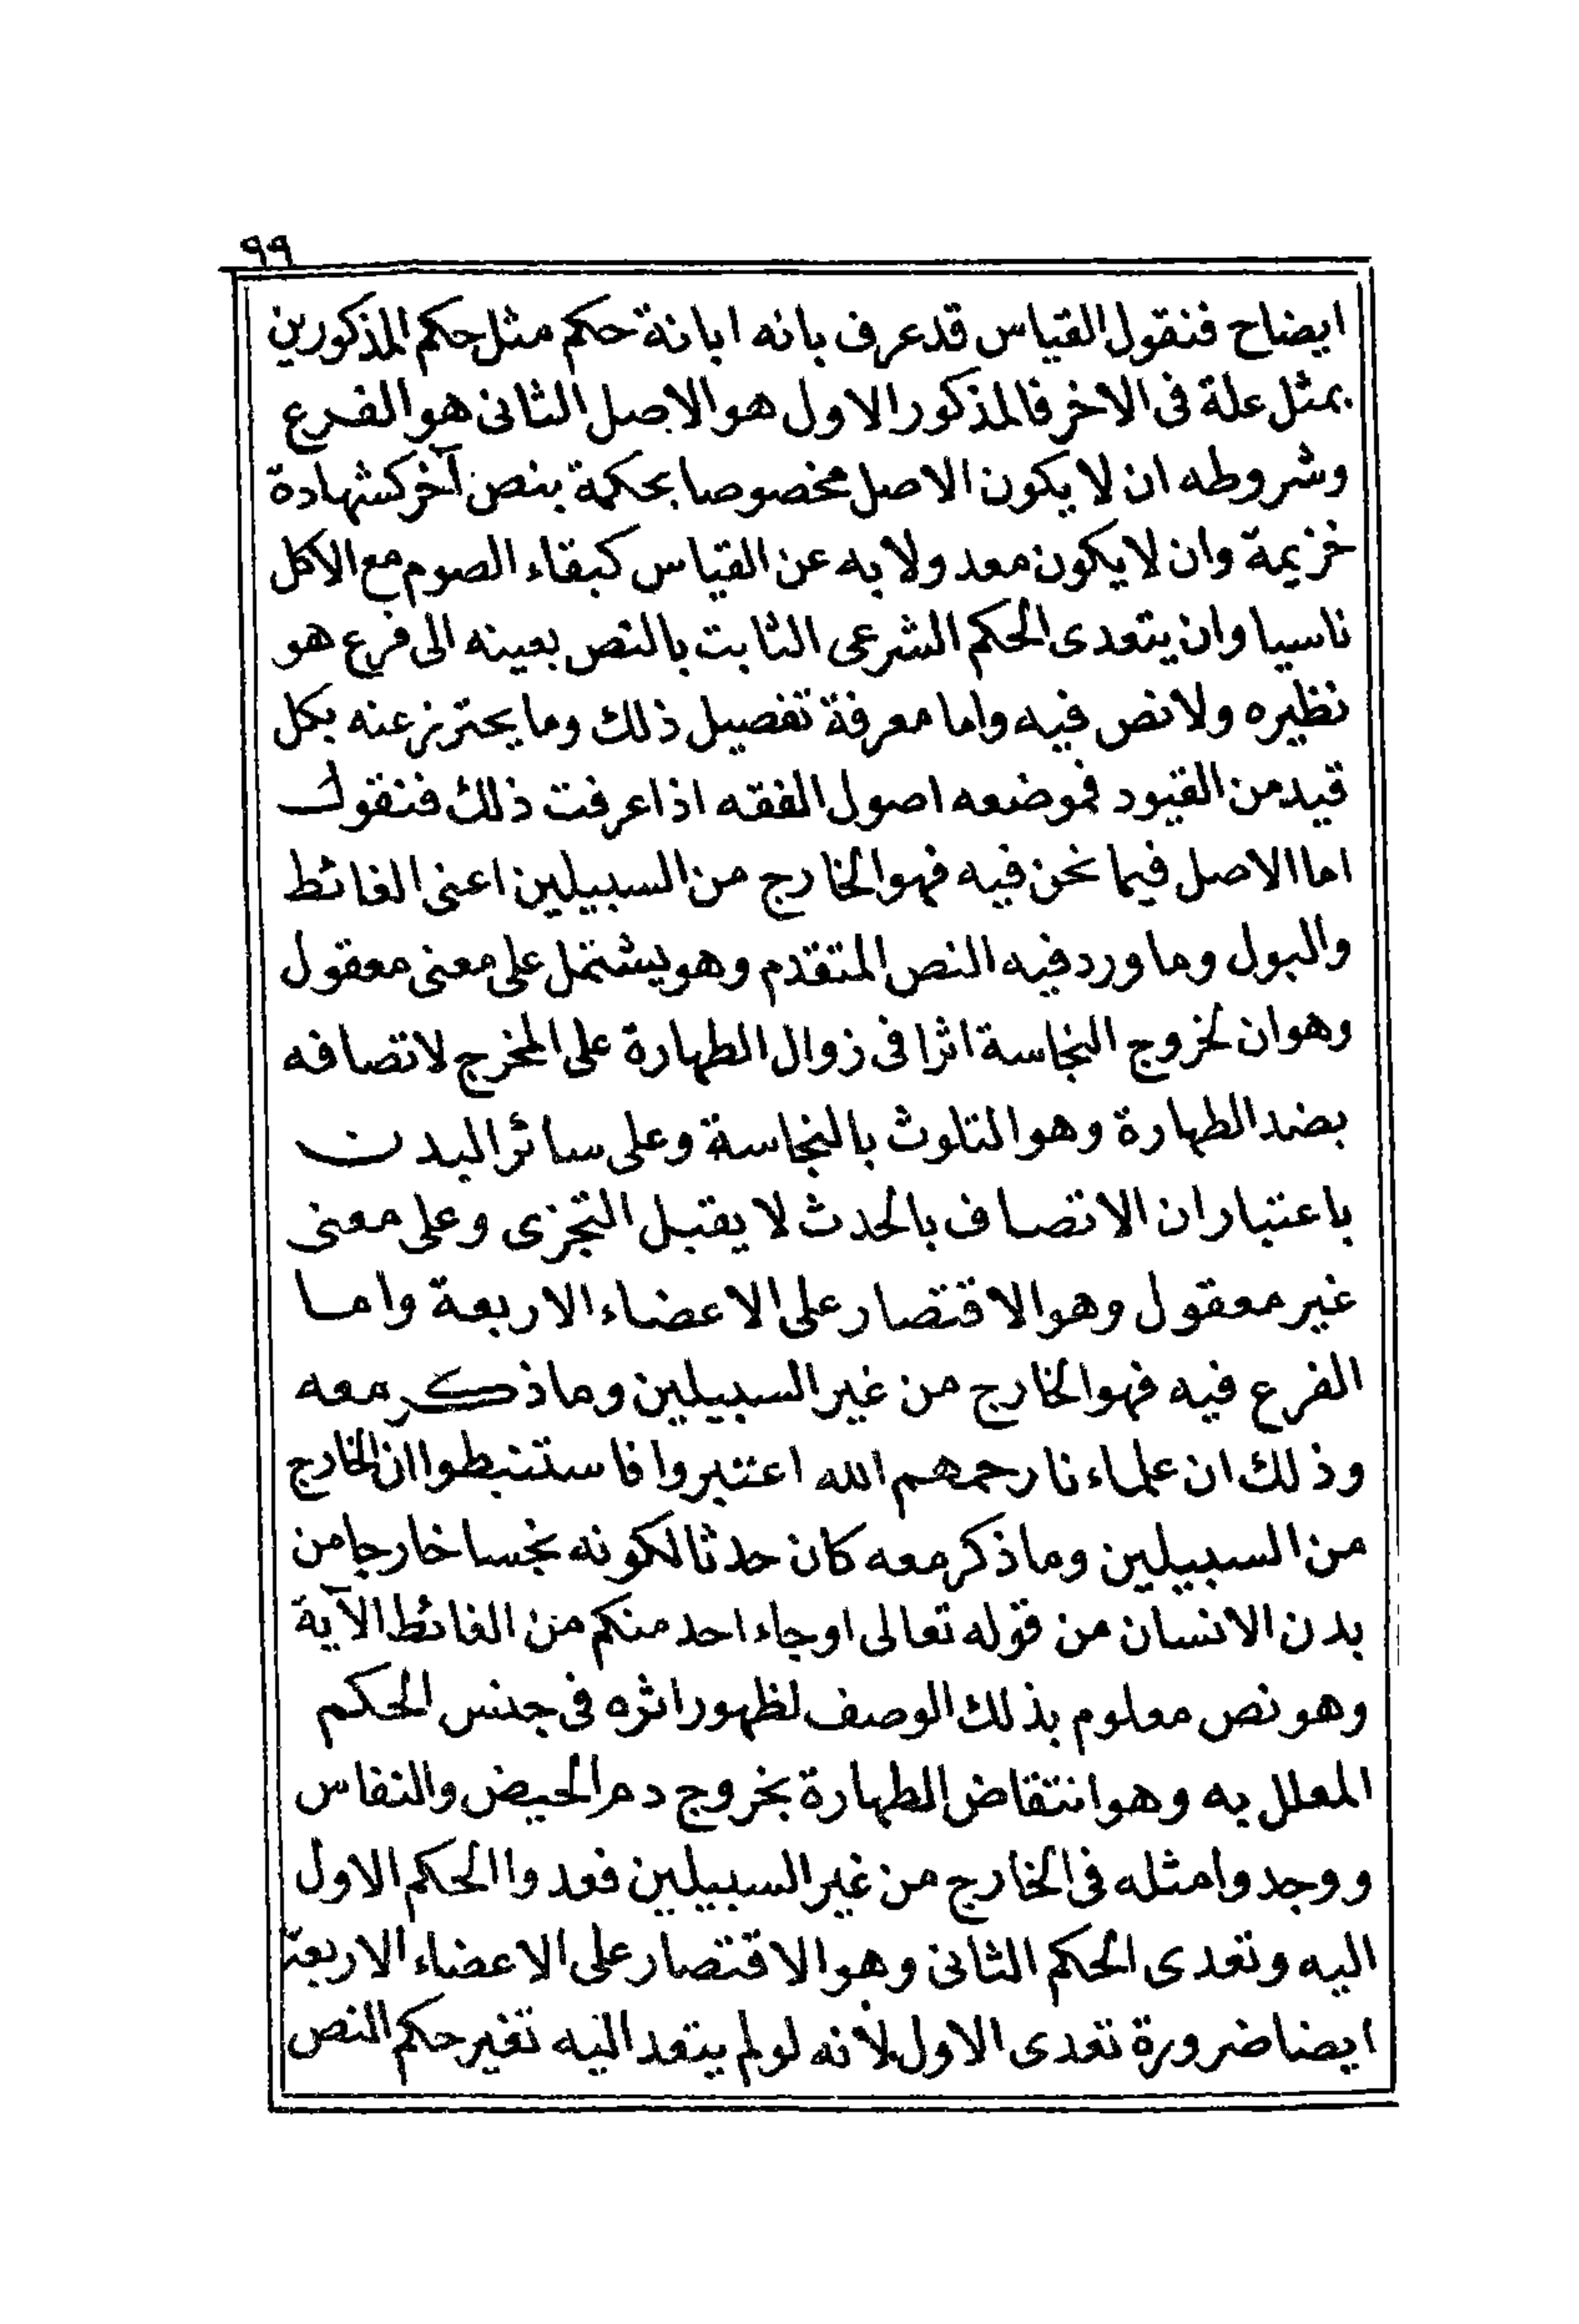 ٩٩
ايضاح فنقول القياس قد عرف بانه ابانة حكم مثل حكم المذكورين
بمثل علة فى الاخر فالمذكور الاول هو الاصل الثانى هو الفرع
وشروطه ان لا يكون الاصل مخصوصا بحكمة بنص آخر كشهادة
خزيمة وان لا يكون معدولا به عن القياس كبقاء الصوم مع الاكل
ناسيا وان يتعدى الحكم الشرعى الثابت بالنص بعينه الى فرع هو
نظيره ولا نص فيه واما معرفة تفصيل ذلك وما يحترز عنه بكل
قيد من القيود فموضعه اصول الفقه اذا عرفت ذلك فنقول
اما الاصل فيما نحن فيه فهو الخارج من السبيلين اعنى الغائط
والبول وما ورد فيه النص المتقدم وهو يشتمل على معنى معقول
وهو ان لخروج النجاسة اثرا فى زوال الطهارة على المخرج لاتصافه
بضد الطهارة وهو التلوث بالنجاسة وعلى سائر البدن
باعتبار ان الاتصاف بالحدث لا يقبل التجزى وعلى معنى
غير معقول وهو الاقتصار على الاعضاء الاربعة واما
الفرع فيه فهو الخارج من غير السبيلين وما ذكر معه
وذلك ان علماءنا رحمهم الله اعتبروا فاستنبطوا ان الخارج
من السبيلين وما ذكر معه كان حدثا لكونه نجسا خارجا من
بدن الانسان من قوله تعالى او جاء احد منكم من الغائط الآية
وهو نص معلوم بذلك الوصف لظهور اثره فى جنس الحكم
المعلل به وهو انتقاض الطهارة بخروج دم الحيض والنفاس
ووجدوا مثله فى الخارج من غير السبيلين فعدوا الحكم الاول
اليه وتعدى الحكم الثانى وهو الاقتصار على الاعضاء الاربعة
ايضا ضرورة تعدى الاول لانه لو لم يتعد اليه تغير حكم النص